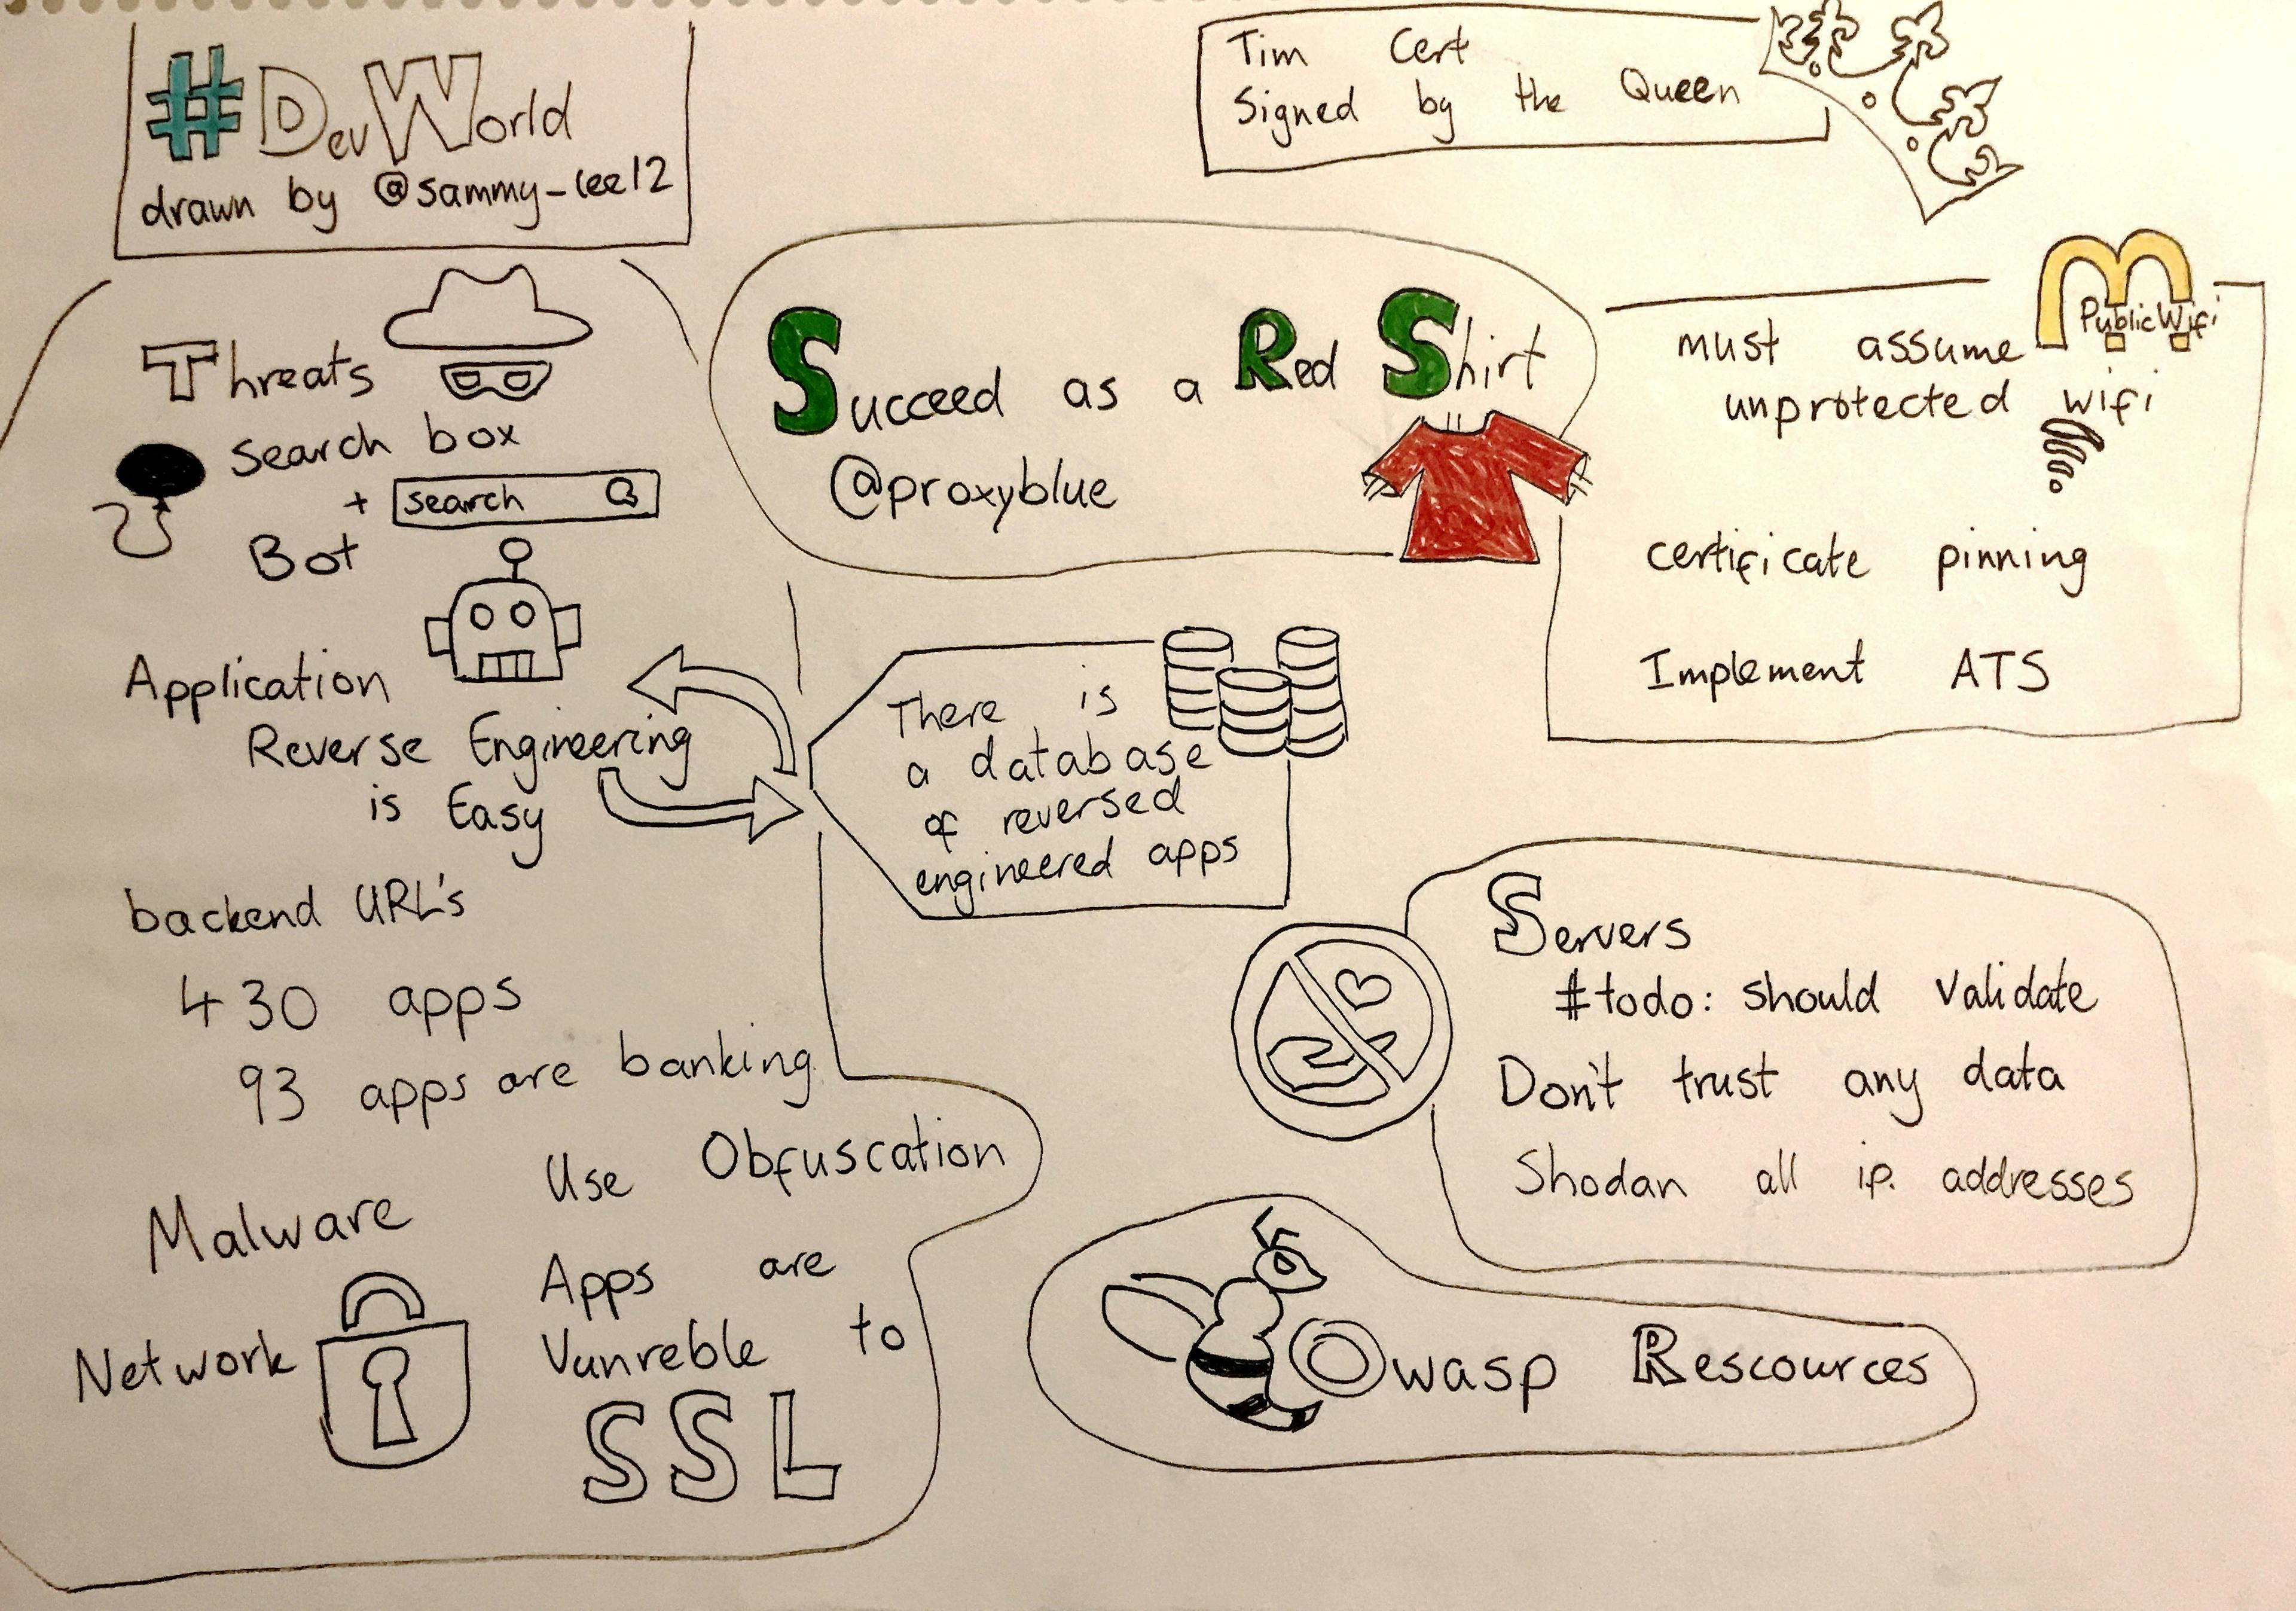 #DevWorld
drawn by @sammy_lee12
Tim Cert
Signed by the Queen
Succeed as a Red Shirt
@proxyblue
Public Wifi
must assume
unprotected wifi
certificate pinning
Implement ATS
Threats
search box
+ search
Bot
Application
Reverse Engineering
is Easy
There is
a database
of reversed
engineered apps
backend URL's
430 apps
93 apps are banking
Use Obfuscation
Malware
Apps are
Vunreble to
SSL
Network
Servers
#todo: should validate
Don't trust any data
Shodan all i.p. addresses
Owasp Rescources